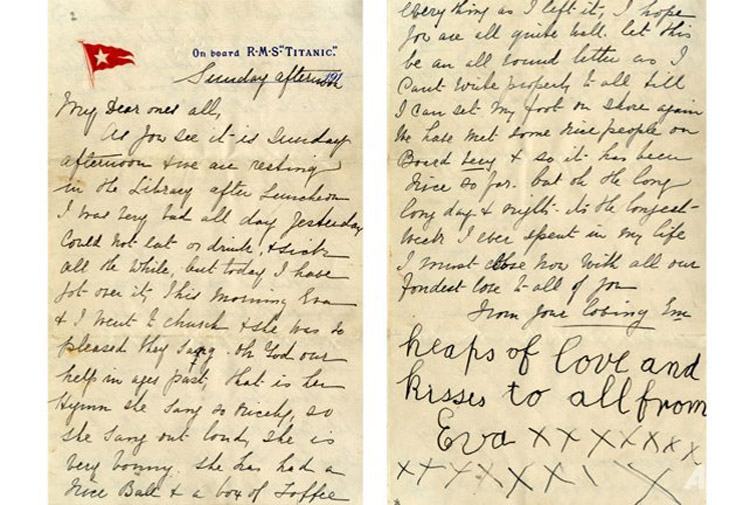 On board R·M·S "TITANIC."
Sunday afternoon
My Dear ones all,
As you see it is Sunday
afternoon & we are resting
in the Library after Luncheon
I was very bad all day Yesterday
Could not eat or drink, & sick
all the while, but today I have
got over it, This morning Eva
& I went to church & she was so
pleased they sang Oh God our
help in ages past, that is her
Hymn she sang so nicely, so
she sang out loud, she is
very bonny. She has had a
nice Ball & a box of Toffee
everything as I left it, I hope
you are all quite well. let this
be an all round letter as I
Can't write properly to all till
I can set my foot on shore again
We have met some nice people on
Board Lucy & so it has been
nice so far. but oh the long
long day & nights. its the longest
Week I ever spent in my life
I must close now with all our
fondest love to all of you
From your loving Em
heaps of love and
kisses to all from
Eva x x x x x x x x
x x x x x x x